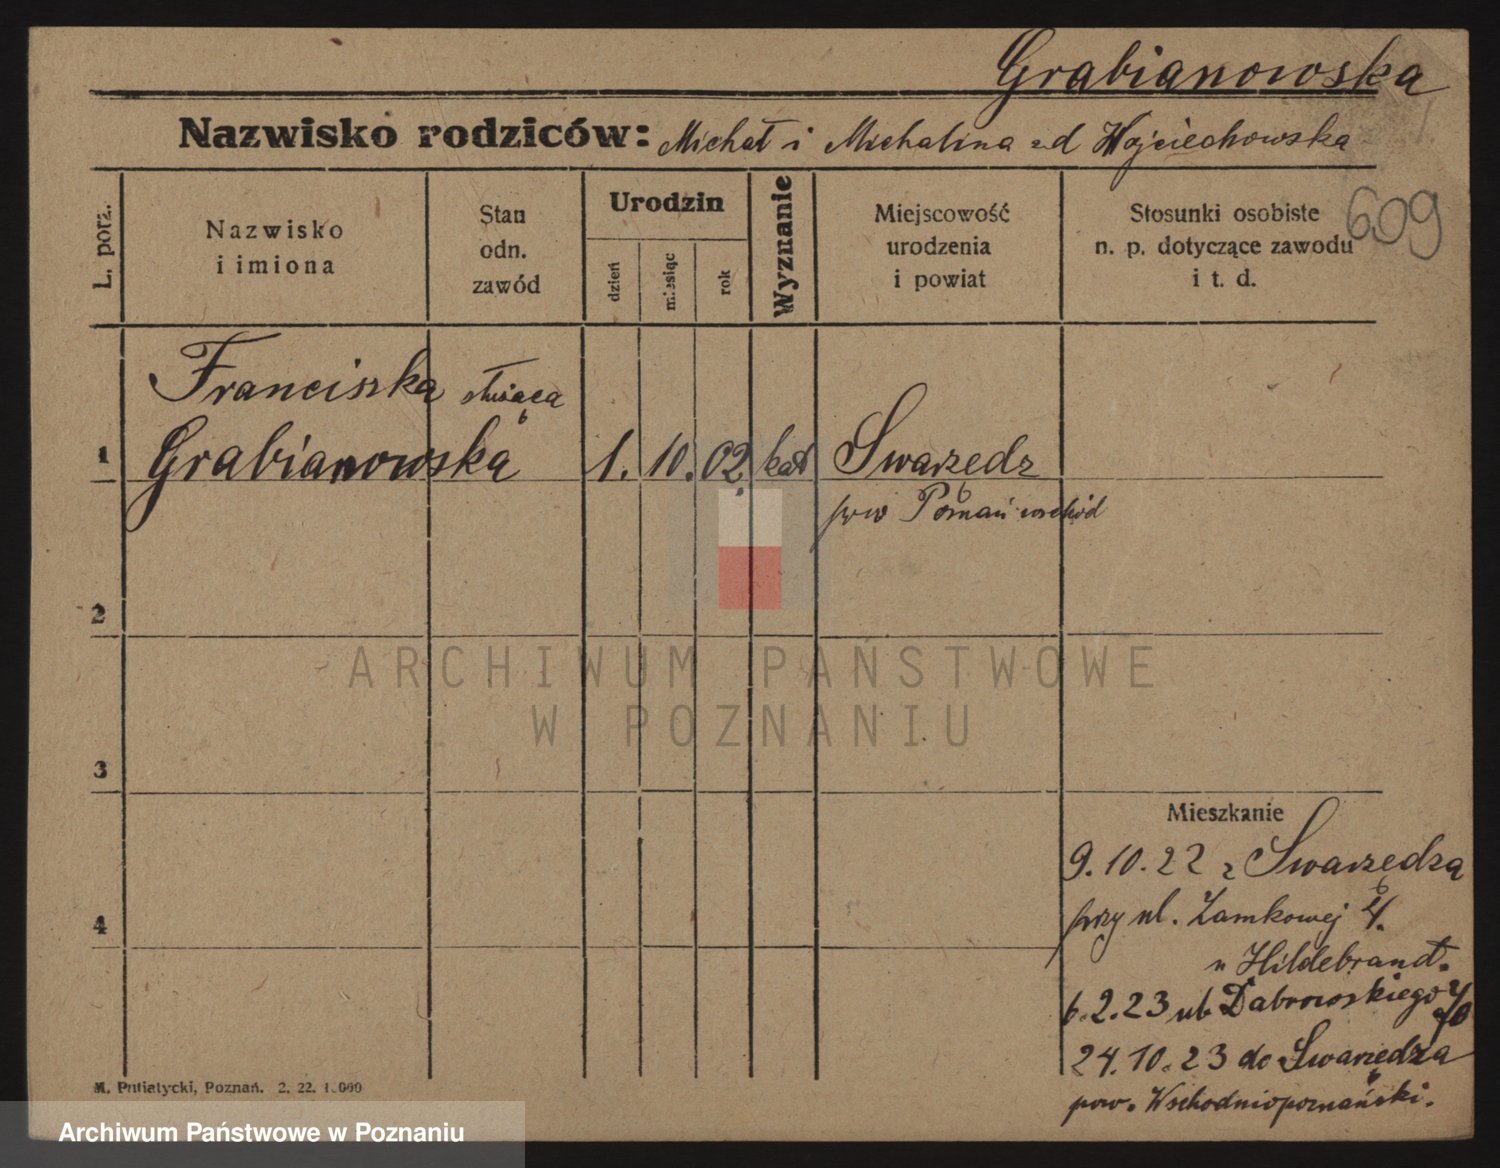 Grabianowska
Nazwisko rodziców: Michał i Michalina zd Wojciechowska
609
L. porz.
Nazwisko
i imiona
Stan
odn.
zawód
Urodzin
dzień
miesiąc
rok
Wyznanie
Miejscowość
urodzenia
i powiat
Stosunki osobiste
n. p. dotyczące zawodu
i t. d.
Franciszka służąca
1 Grabianowska 1. 10. 02. kat Swarzedz
pow Poznań wschód
2
ARCHIWUM PAŃSTWOWE
W POZNANIU
3
Mieszkanie
9.10.22 z Swarzędza
przy ul. Zamkowej 4.
u Hildebrandt.
4
6.2.23 ul. Dąbrowskiego
24.10.23 do Swarzędza
pow. Wschodniopoznański.
M. Putiatycki, Poznań. 2. 22. 1.000
Archiwum Państwowe w Poznaniu